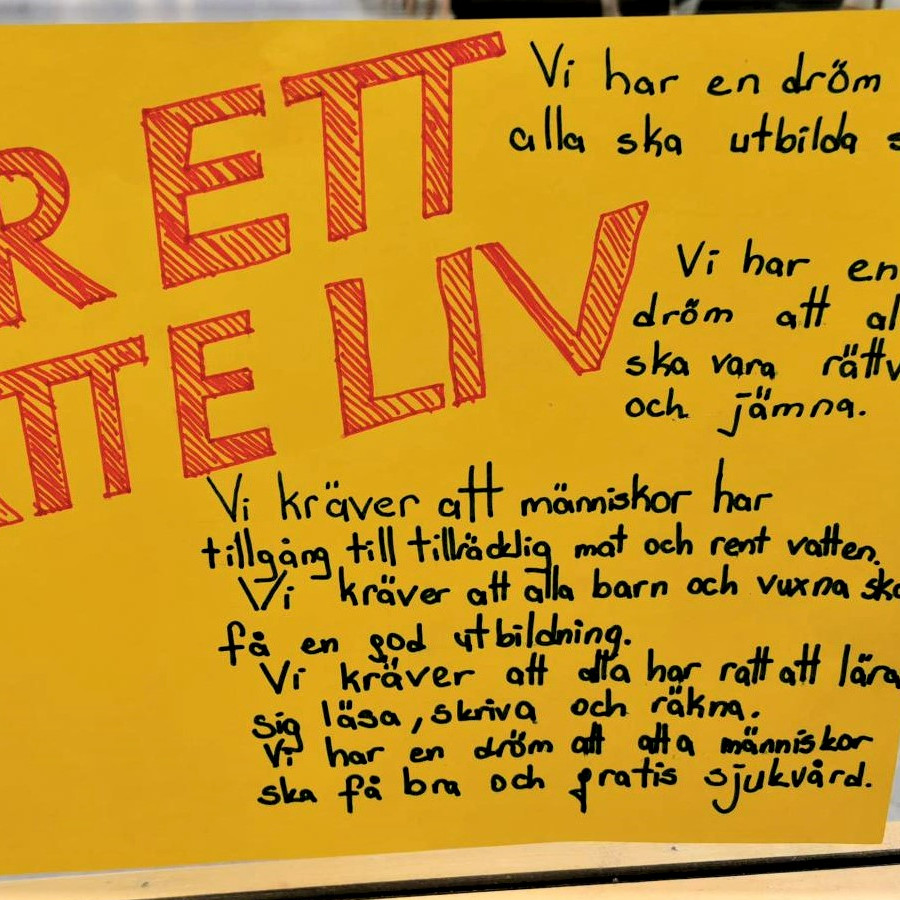 R ETT
ATTE LIV
Vi har en dröm
alla ska utbilda s
Vi har en
dröm att al
ska vara rättv
och jämna.
Vi kräver att människor har
tillgång till tillräcklig mat och rent vatten.
Vi kräver att alla barn och vuxna ska
få en god utbildning.
Vi kräver att alla har rätt att lära
sig läsa, skriva och räkna.
Vi har en dröm att alla människor
ska få bra och gratis sjukvård.